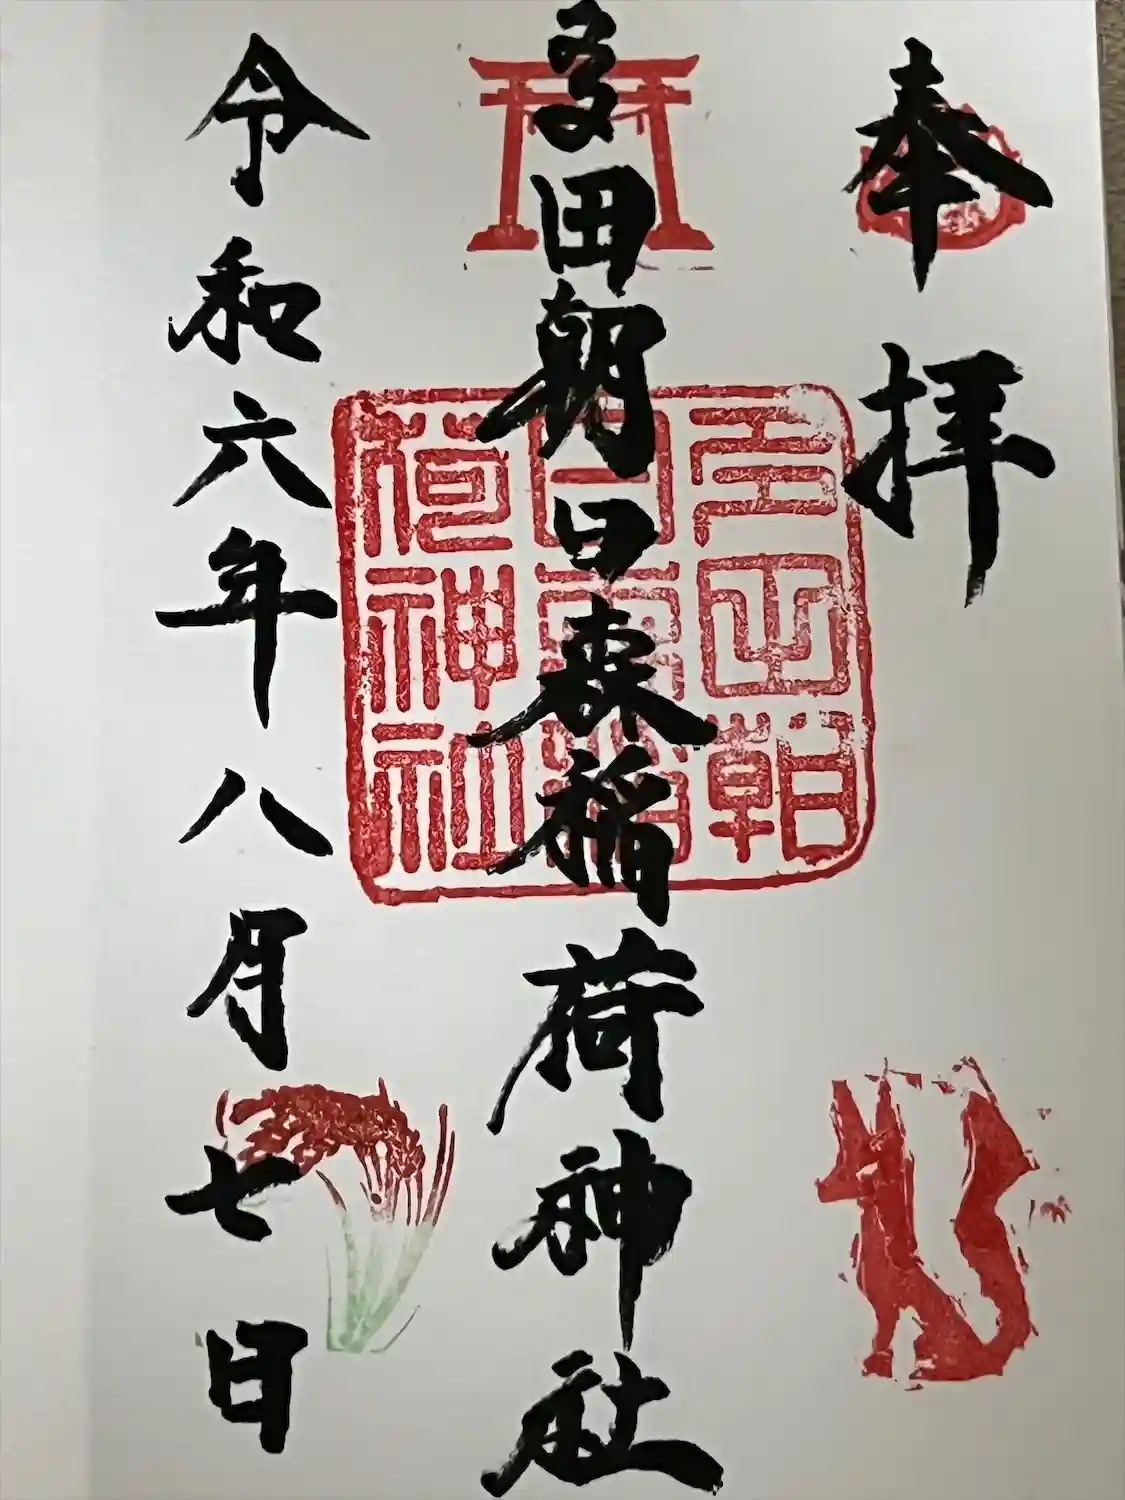 奉拝
多田朝日森稲荷神社
令和六年八月七日
多田朝
日森稲
荷神社